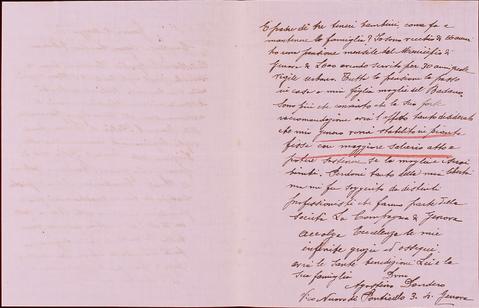 È padre di tre teneri bambini come fa a
mantenere la famiglia? Io sono vecchio di anni
ho una pensione mensile dal Municipio di
Genova di avendo servito per 30 anni quale
vigile urbano. Tutta la pensione la passo
in casa a mia figlia moglie del
sono più che convinto che la Sua forte
raccomandazione avrà l'effetto tanto desiderato
che mio genero verrà stabilito in pianta
fissa con maggiore salario atto a
potere sostenere se la moglie e i suoi
bimbi. Perdoni tanto della mia libertà
ma mi fu suggerito da distinti
professionisti che fanno parte della
Società La Compagna di Genova
Accolga Eccellenza le mie
infinite grazie ed ossequi
avrà le Sante benedizioni Lei e la
Sua famiglia Dmo
Agostino Dondero
Vico Nuovo di Ponticello 3. 4. Genova